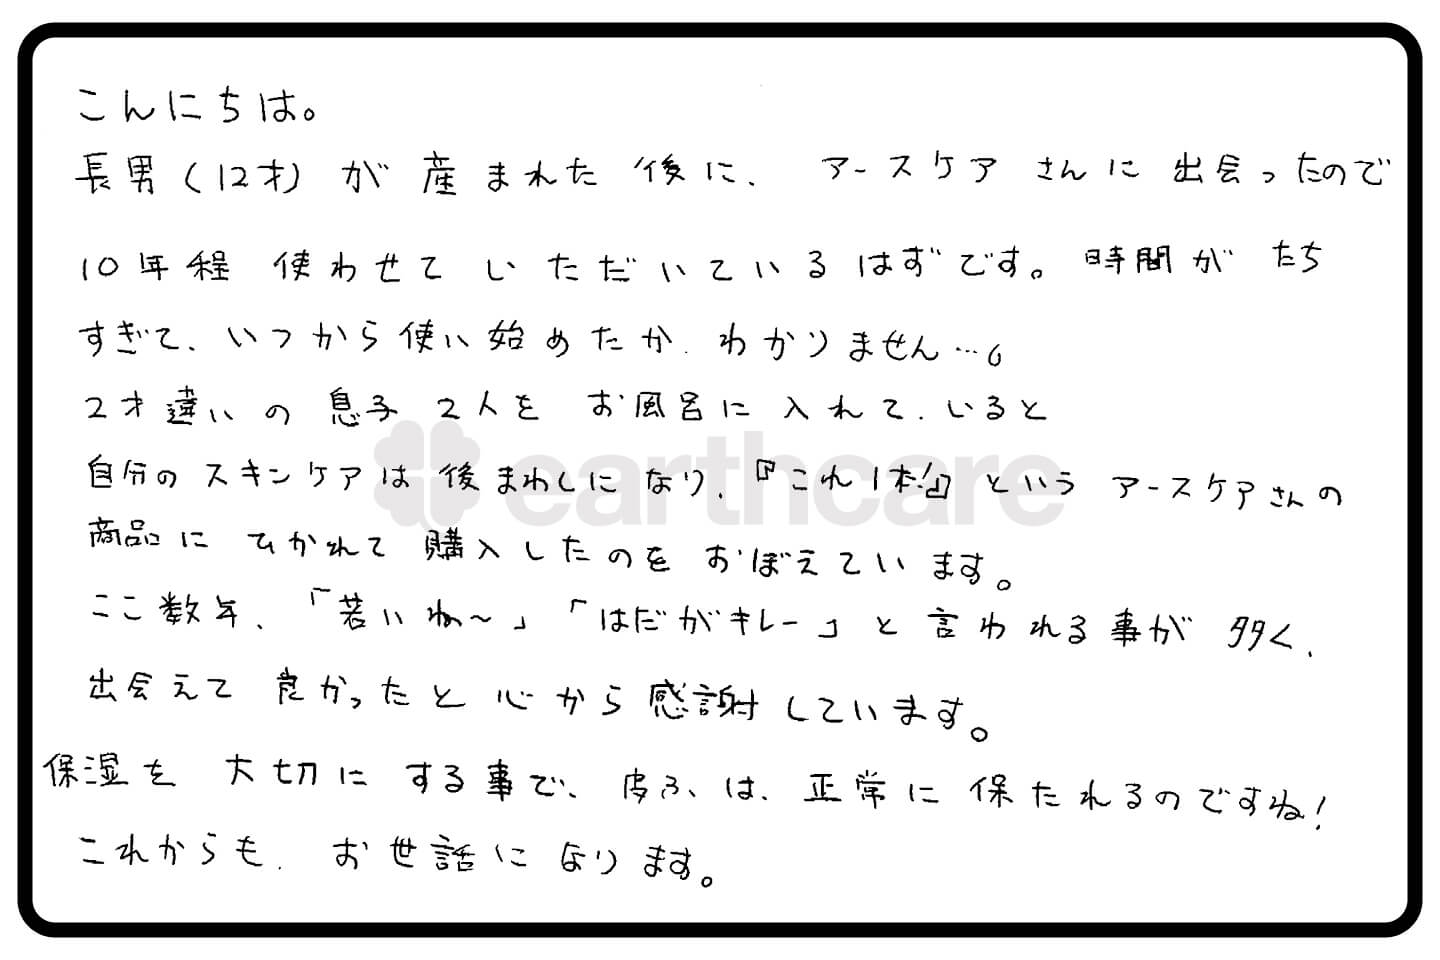 こんにちは。
長男(12才)が産まれた後に、アースケアさんに出会ったので
10年程使わせていただいているはずです。時間がたち
すぎて、いつから使い始めたか、わかりません…。
2才違いの息子2人をお風呂に入れて、いると
自分のスキンケアは後まわしになり、『これ1本!』というアースケアさんの
earthcare
商品にひかれて購入したのをおぼえています。
ここ数年、「若いね〜」「はだがキレー」と言われる事が多く、
出会えて良かったと心から感謝しています。
保湿を大切にする事で、皮ふは、正常に保たれるのですね!
これからも、お世話になります。